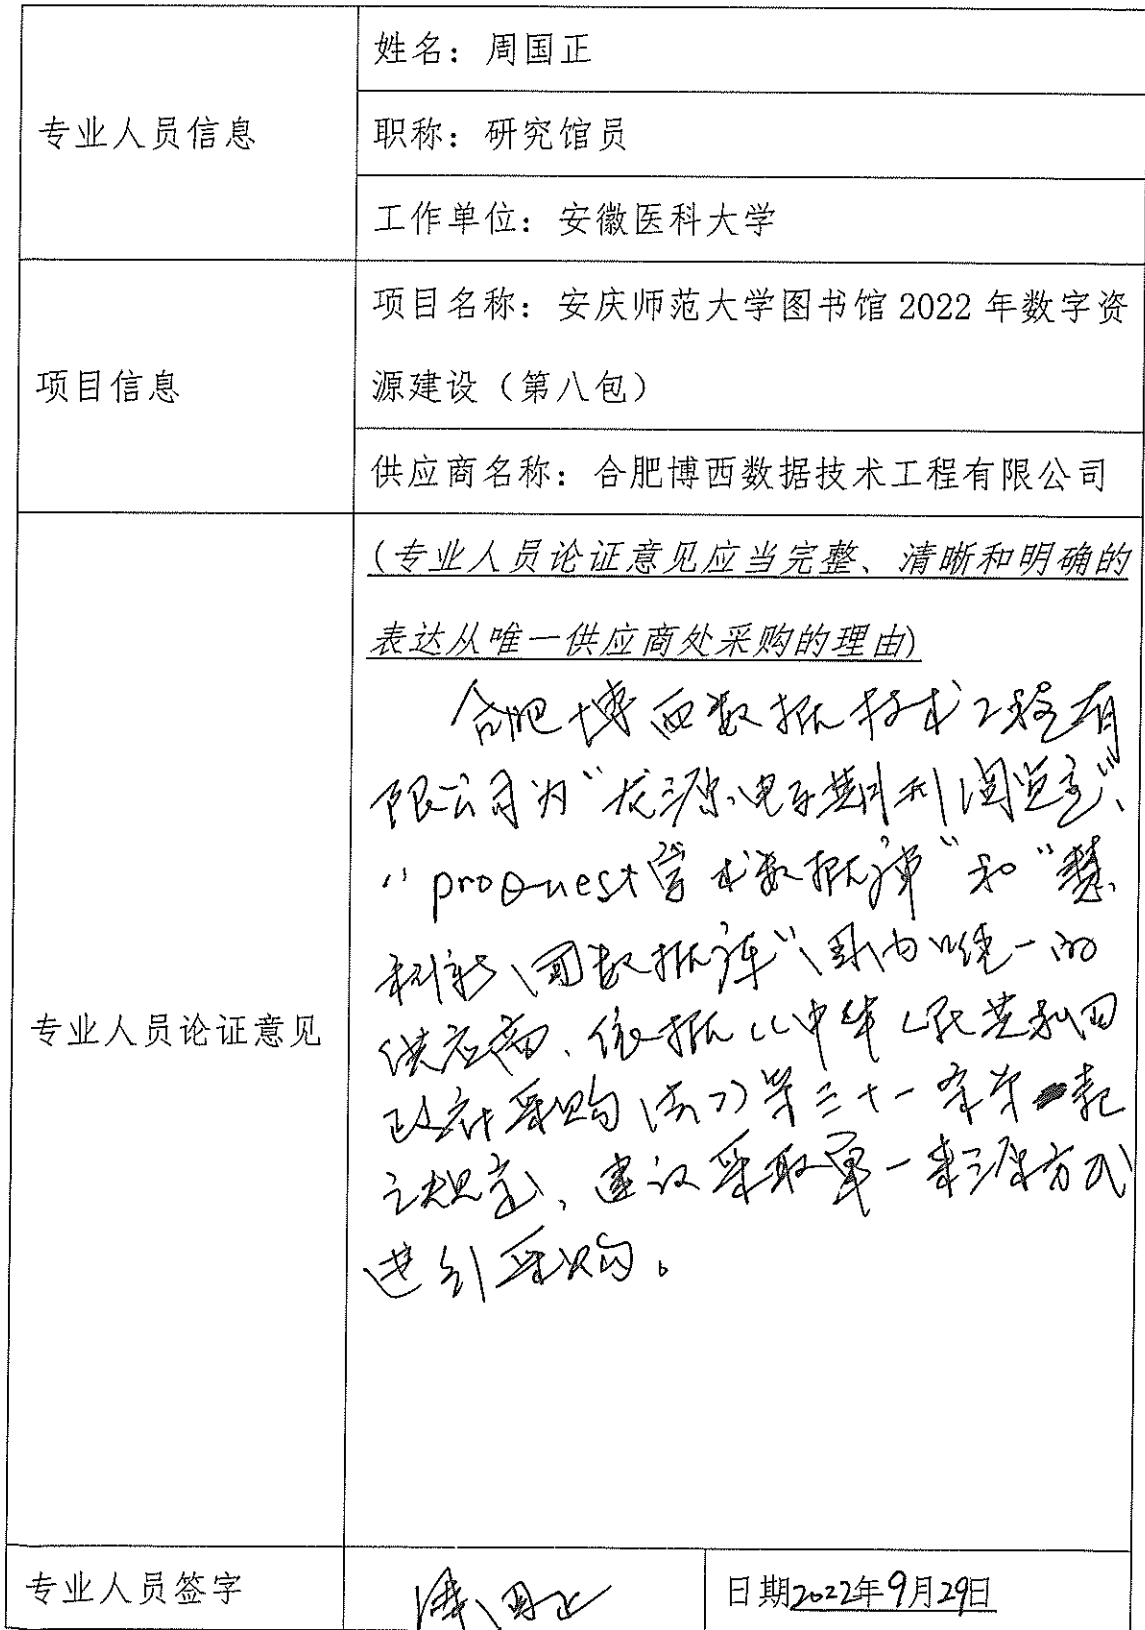 姓名：周国正
专业人员信息
职称：研究馆员
工作单位：安徽医科大学
项目名称：安庆师范大学图书馆 2022 年数字资
项目信息
源建设（第八包）
供应商名称：合肥博西数据技术工程有限公司
(专业人员论证意见应当完整、清晰和明确的
表达从唯一供应商处采购的理由)
合肥博西数据技术工程有
限公司为“龙源电子期刊阅览室”、
“proQuest学术数据库”和“慧
科新闻数据库”国内唯一的
专业人员论证意见
供应商、依据《中华人民共和国
政府采购法》第三十一条第一款
之规定、建议采取单一来源方式
进行采购。
专业人员签字
周国正
日期2022年9月29日